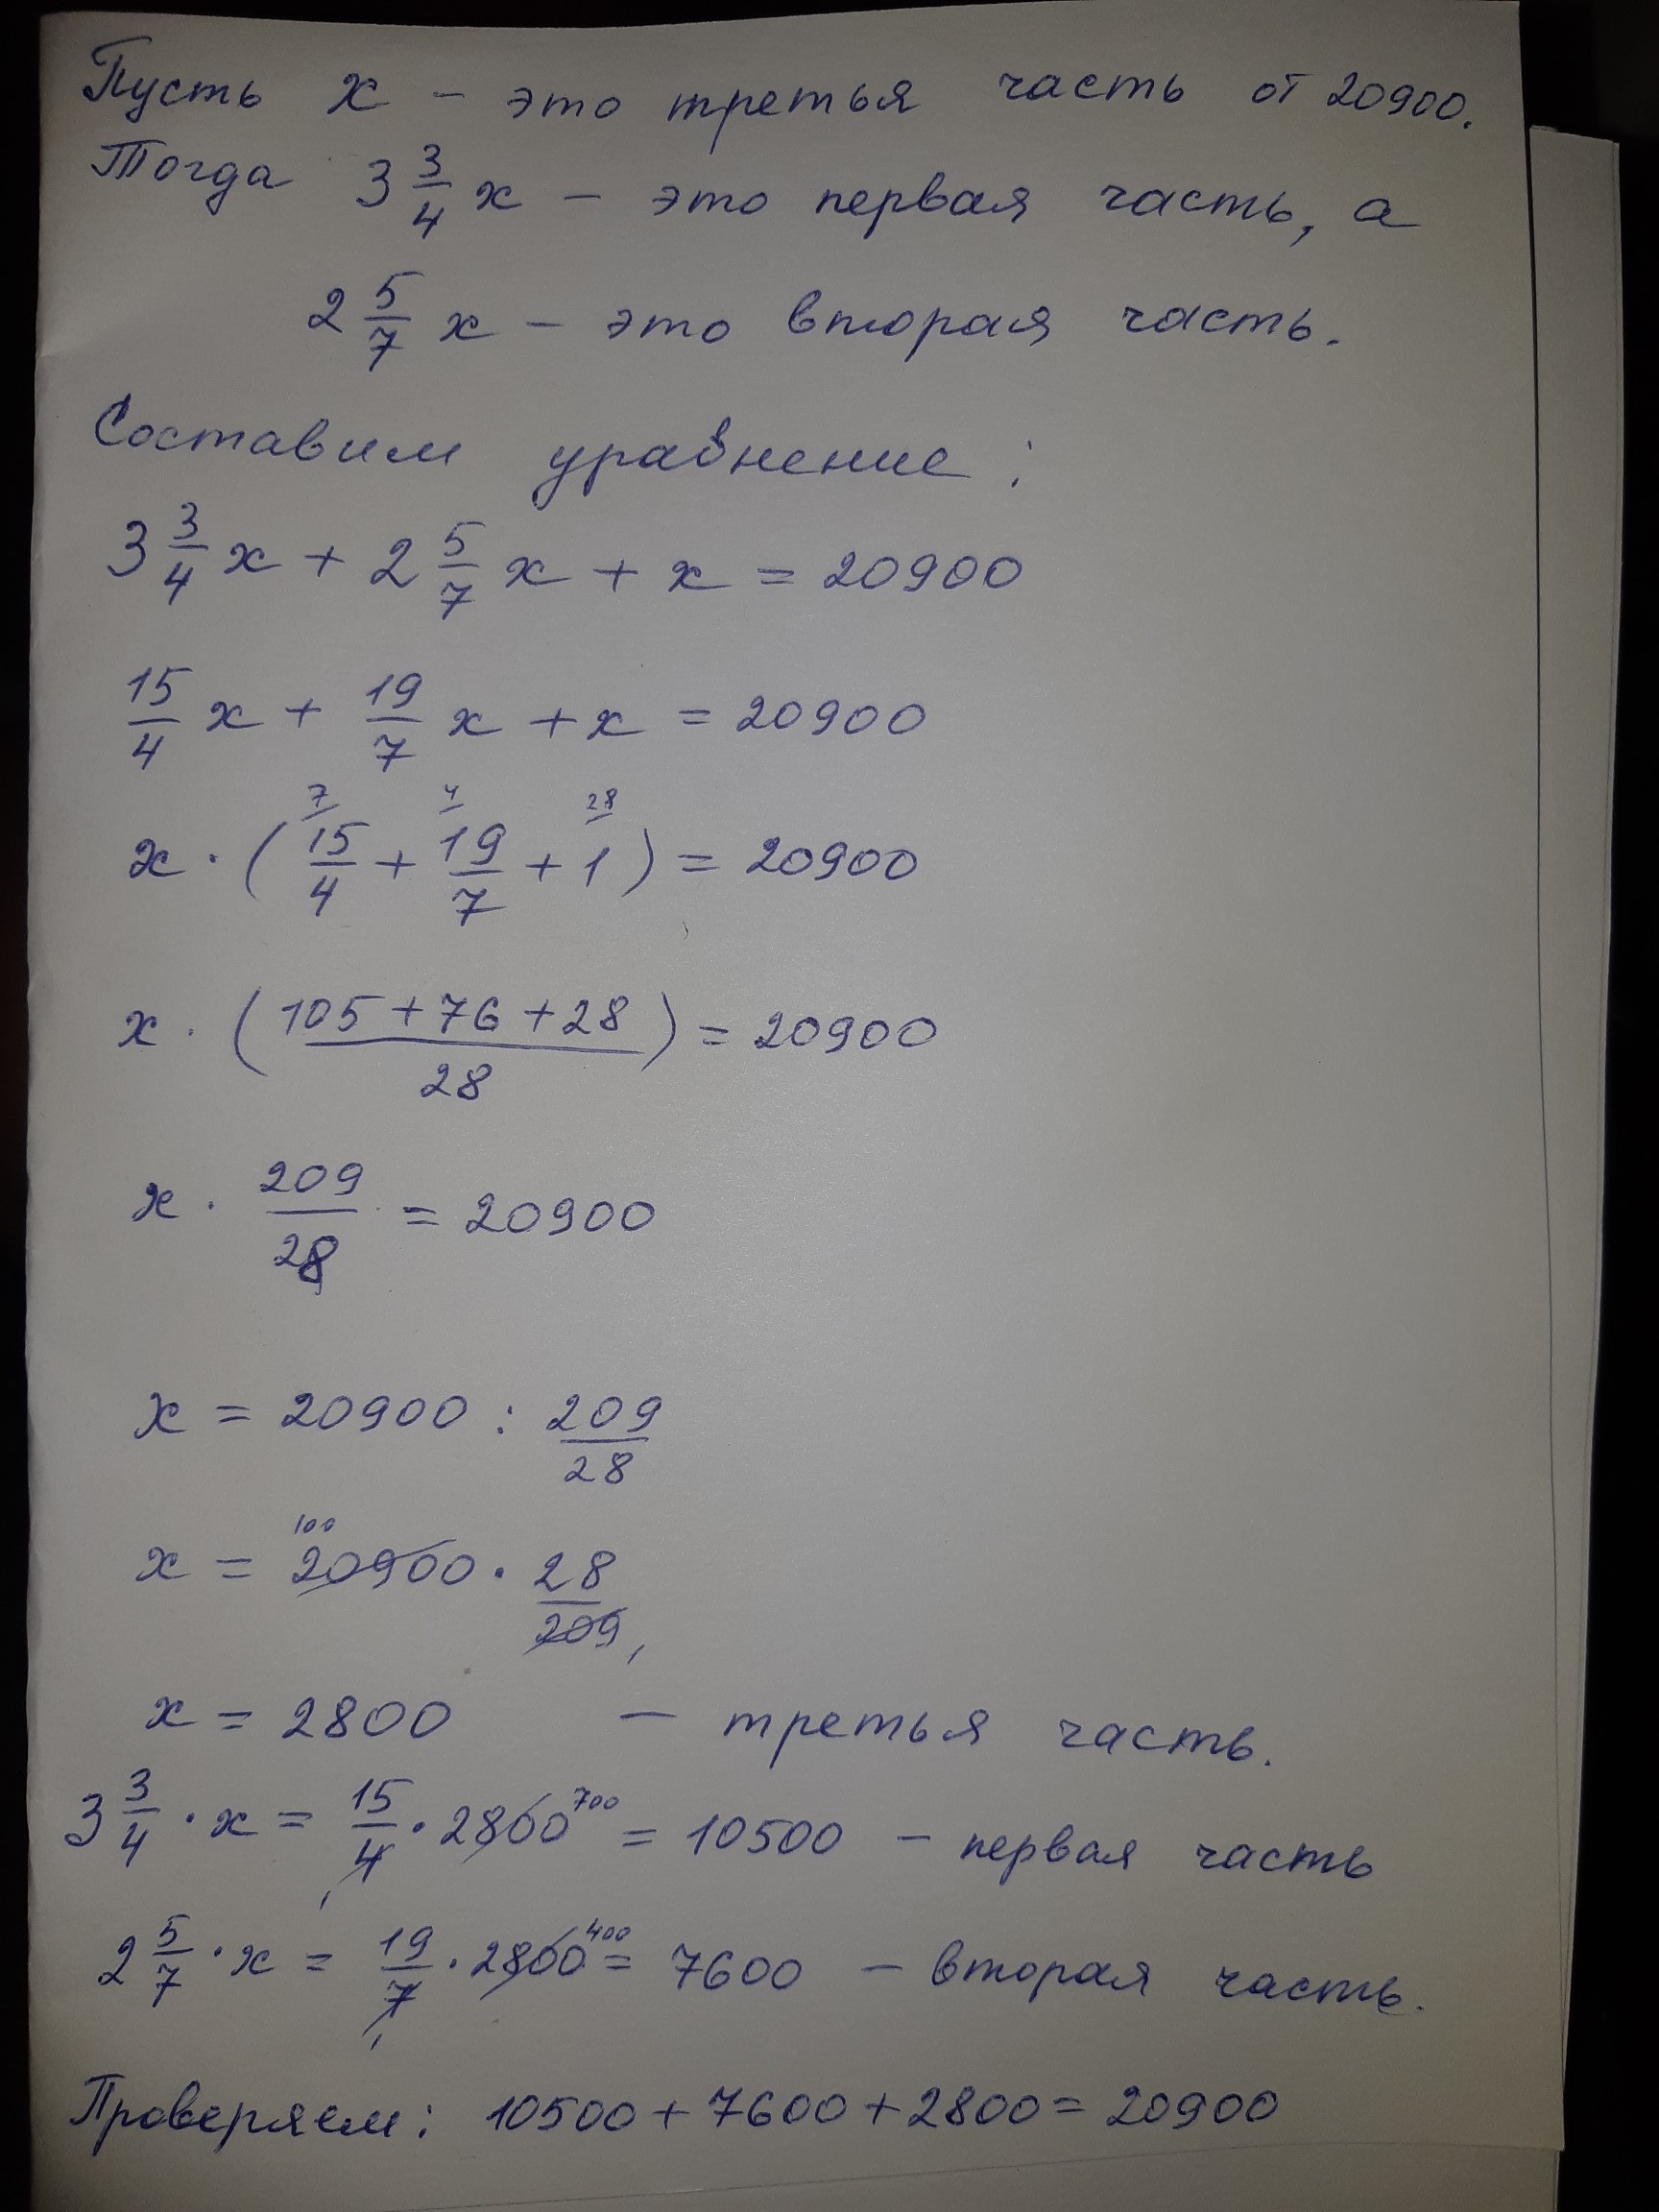 Пусть x – это третья часть от 20900.
Тогда 3 3/4 x – это первая часть, а
2 5/7 x – это вторая часть.
Составим уравнение:
3 3/4 x + 2 5/7 x + x = 20900
15/4 x + 19/7 x + x = 20900
7 4 28
x · (15/4 + 19/7 + 1) = 20900
x · (105 + 76 + 28 / 28) = 20900
x · 209/28 = 20900
x = 20900 : 209/28
100
x = 20900 · 28/209
x = 2800 – третья часть.
3 3/4 · x = 15/4 · 2800 700 = 10500 – первая часть
2 5/7 · x = 19/7 · 2800 400 = 7600 – вторая часть.
Проверяем: 10500 + 7600 + 2800 = 20900